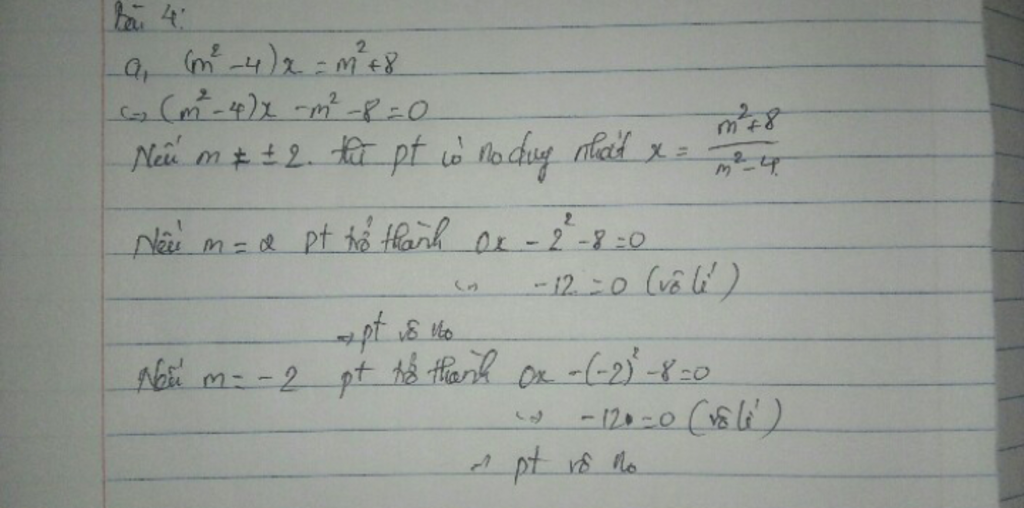 Bài 4:
a, (m² - 4)x = m² + 8
<=> (m² - 4)x - m² - 8 = 0
Nếu m ≠ ± 2. thì pt có no duy nhất x = (m² + 8)/(m² - 4)
Nếu m = 2 pt trở thành 0x - 2² - 8 = 0
<=> -12 = 0 (vô lí)
=> pt vô no
Nếu m = -2 pt trở thành 0x - (-2)² - 8 = 0
<=> -12 = 0 (vô lí)
=> pt vô no